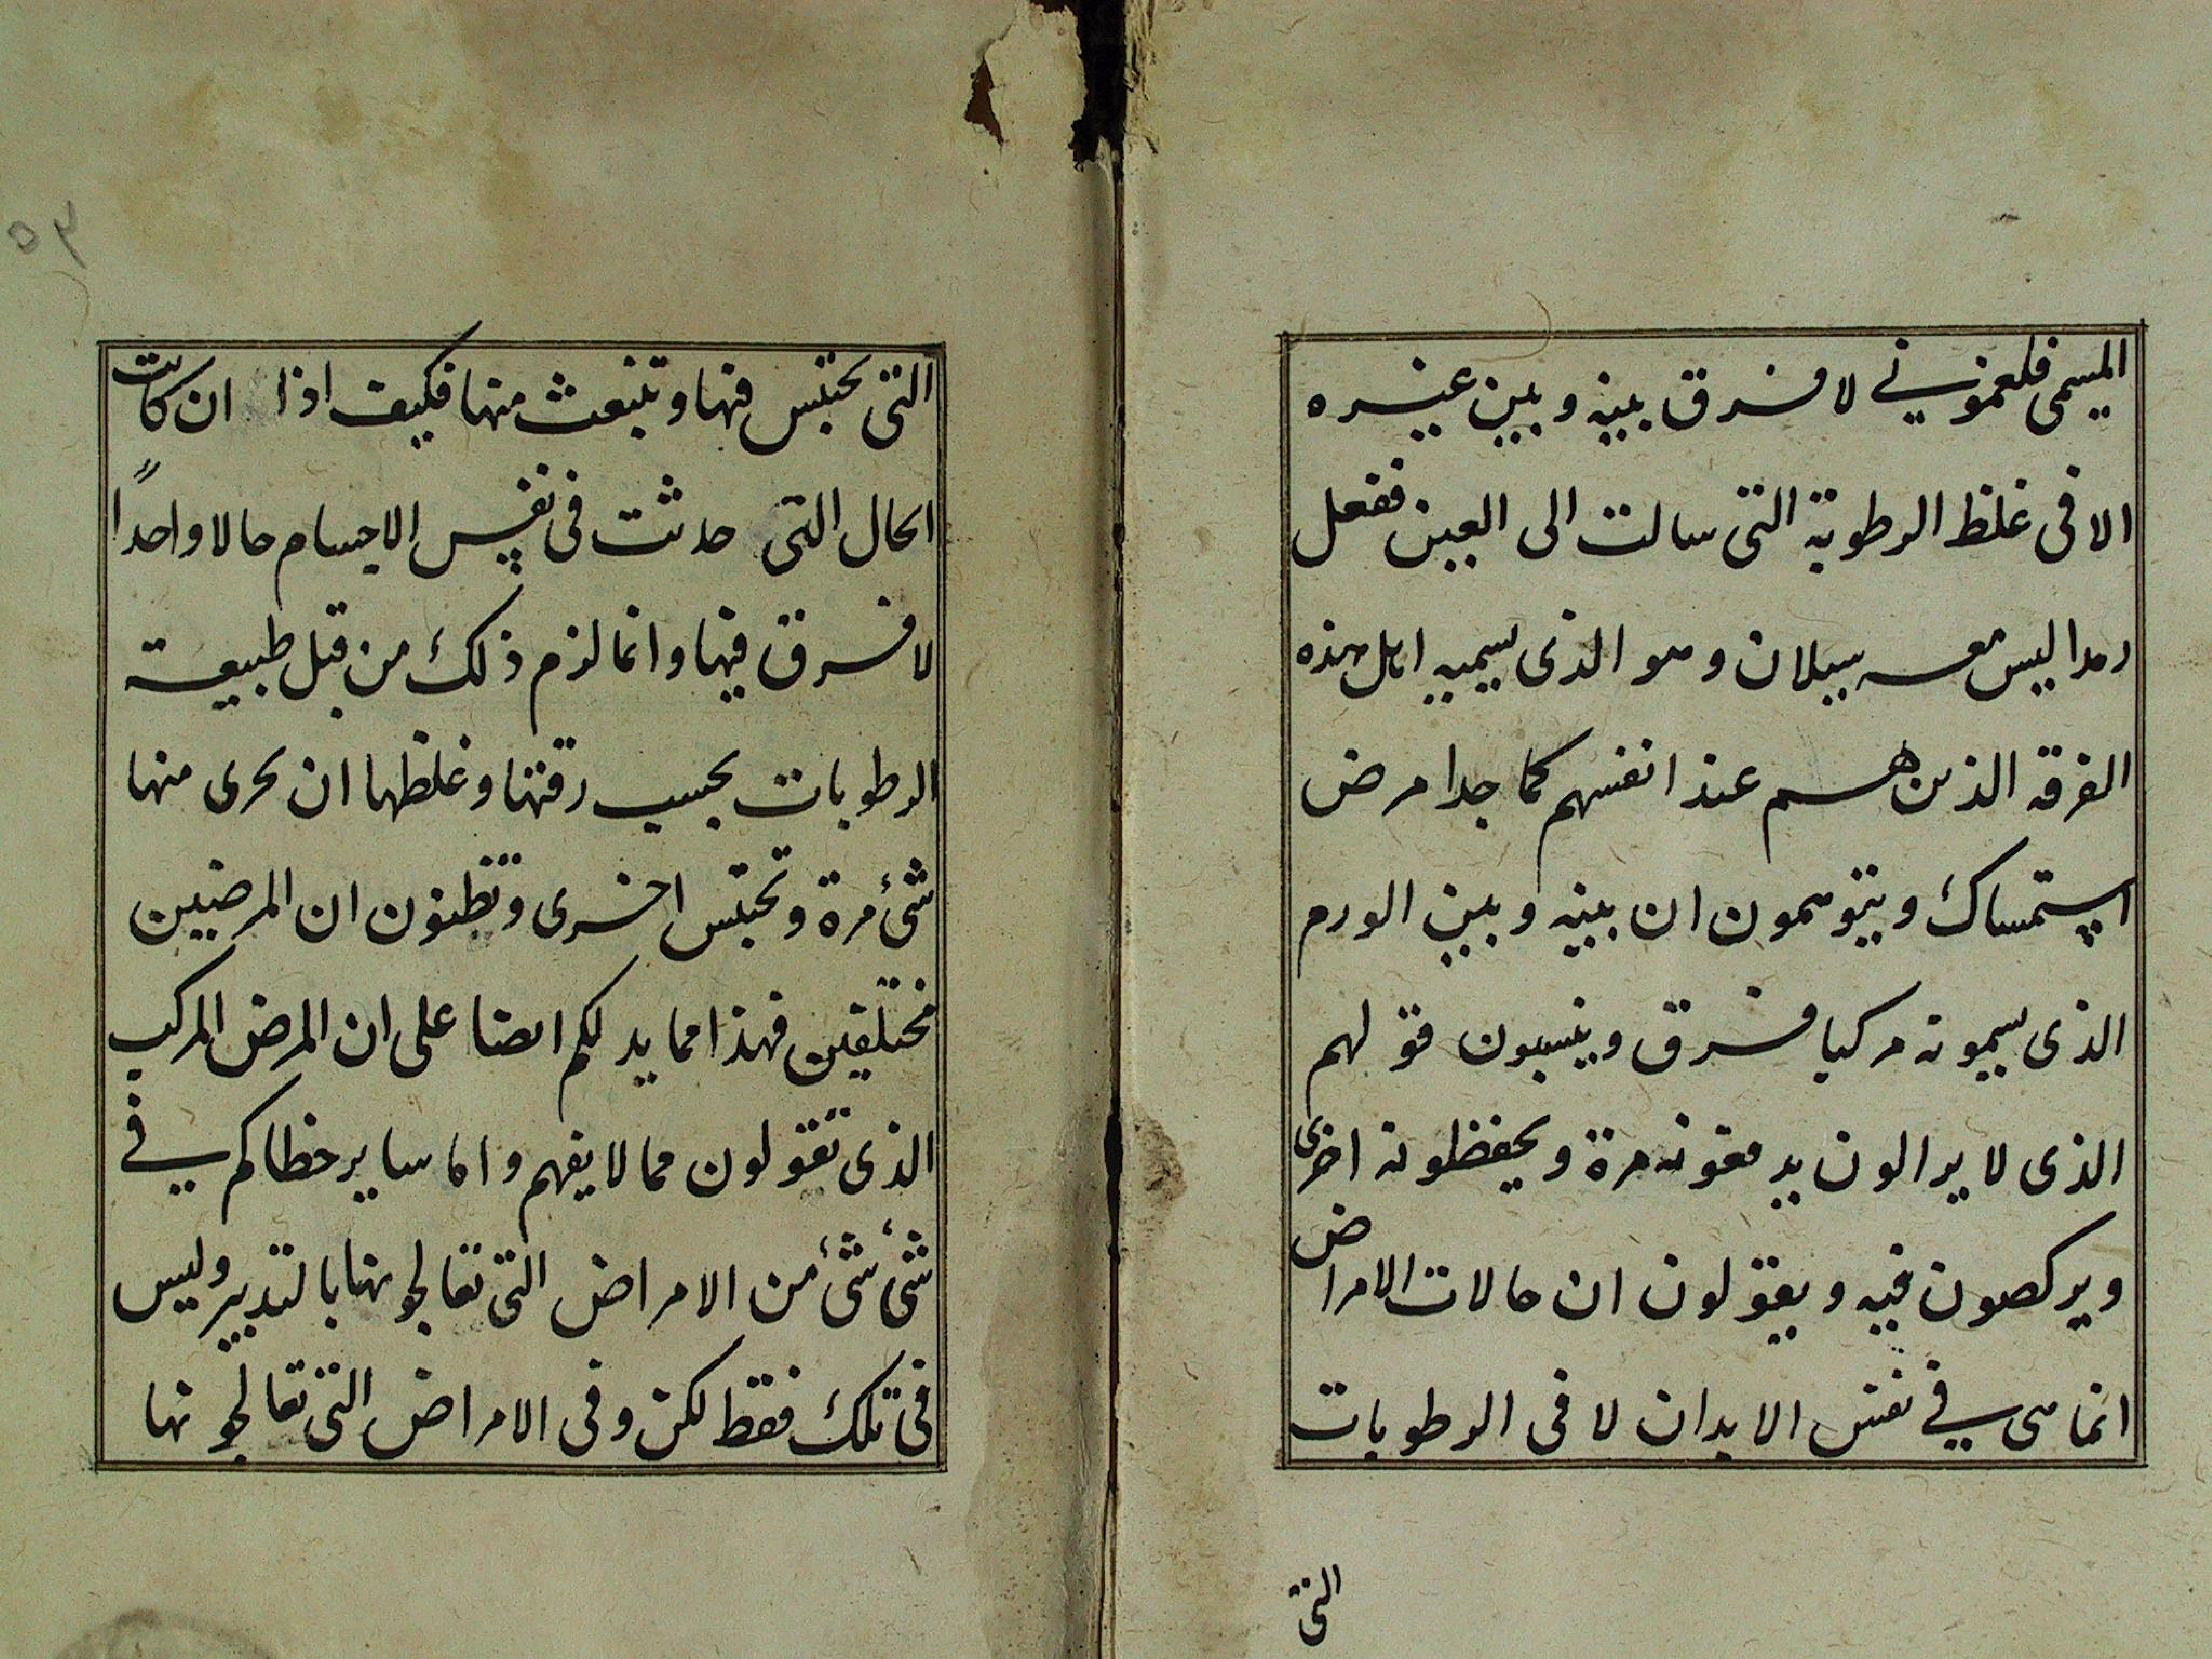 المسمى فلغموني لا فرق بينه وبين غيره
الا في غلظ الرطوبة التى سالت الى العين ففعل
رمدا ليس معه سيلان وهو الذى يسميه اهل هذه
الفرقه الذين هم عند انفسهم كما جدا مرض
استمساك ويتوهمون ان بينه وبين الورم
الذى يسمونه مركبا فرق وينسبون قولهم
الذى لا يزالون يدفعونه مرة ويحفظونه اخرى
ويركضون فيه ويقولون ان حالات الامراض
انما هى في نفس الابدان لا فى الرطوبات
التى
٥٣
التى تحتبس فيها وتنبعث منها فكيف اذا ان كانت
الحال التى حدثت فى نفس الاجسام حالا واحدًا
لا فرق فيها وانما لزم ذلك من قبل طبيعة
الرطوبات بحسب رقتها وغلظها ان يجرى منها
شئ مرة وتحتبس اخرى وتظنون ان المرضين
مختلفين فهذا مما يدلكم ايضا على ان المرض المركب
الذى تقولون مما لا يفهم واما ساير خطاكم في
شئ شئ من الامراض التى تعالجونها بالتدبير وليس
فى تلك فقط لكن وفى الامراض التى تعالجونها